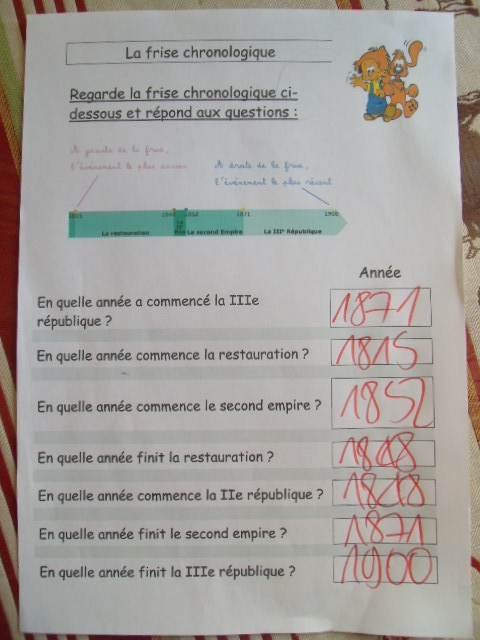 La frise chronologique
Regarde la frise chronologique ci-
dessous et répond aux questions :
A gauche de la frise,
l'événement le plus ancien
A droite de la frise,
l'événement le plus récent
1815 1848 1852 1871 1900
La restauration Le second Empire La IIIe République
Année
En quelle année a commencé la IIIe
république ? 1871
En quelle année commence la restauration ? 1815
En quelle année commence le second empire ? 1852
En quelle année finit la restauration ? 1848
En quelle année commence la IIe république ? 1848
En quelle année finit le second empire ? 1871
En quelle année finit la IIIe république ? 1900